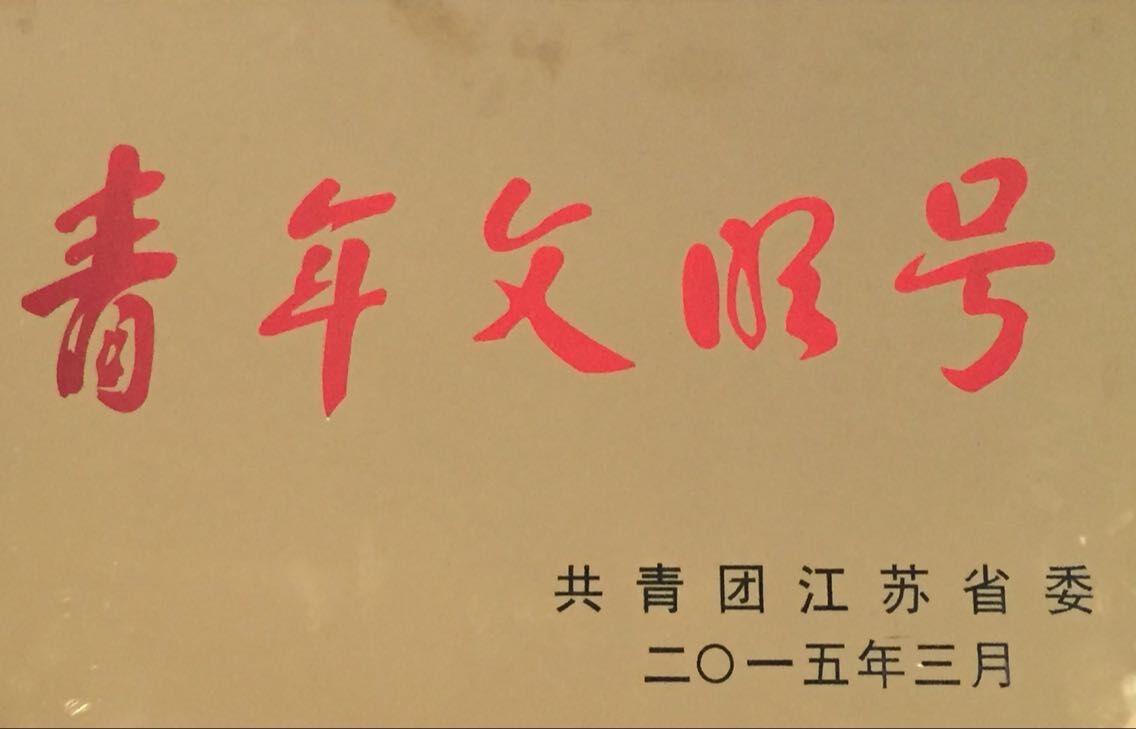 青年文明号
共青团江苏省委
二〇一五年三月